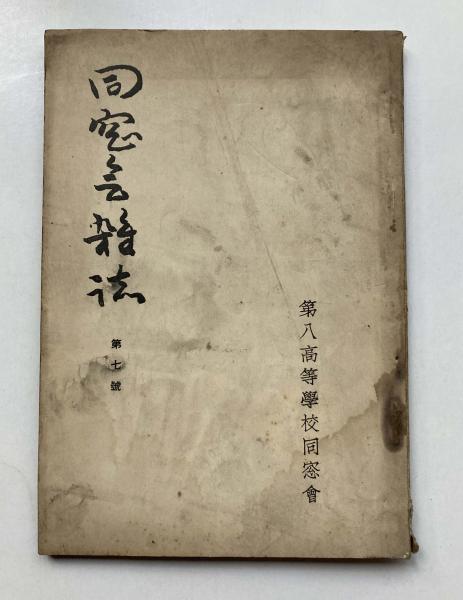 同窓会雑誌
第七號
第八高等學校同窓會